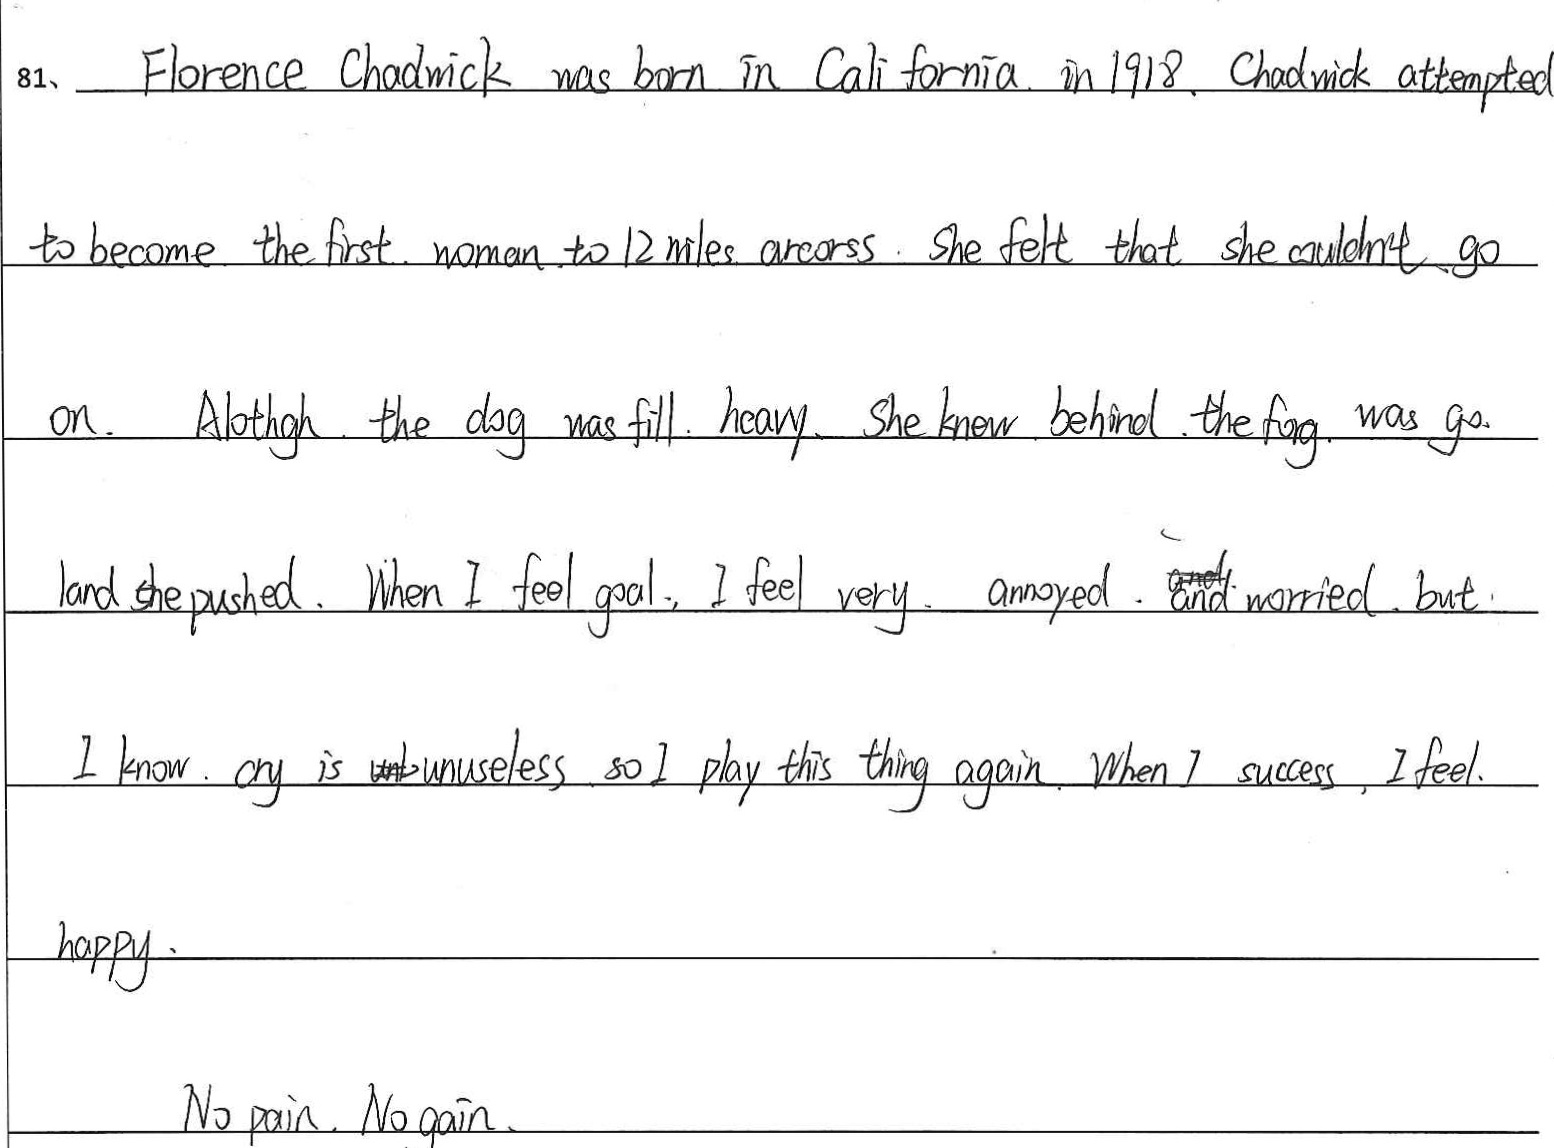 81、 Florence Chadwick was born in California. in 1918. Chadwick attempted
to become the first. woman to 12 miles arcorss. She felt that she couldn't go
on. Alothgh the dog was fill. heavy. She knew behind the forg. was go.
land she pushed. When I feel goal., I feel very. annoyed. and worried. but.
I know. cry is unuseless. so I play this thing again. When I success, I feel.
happy.
No pain. No gain.